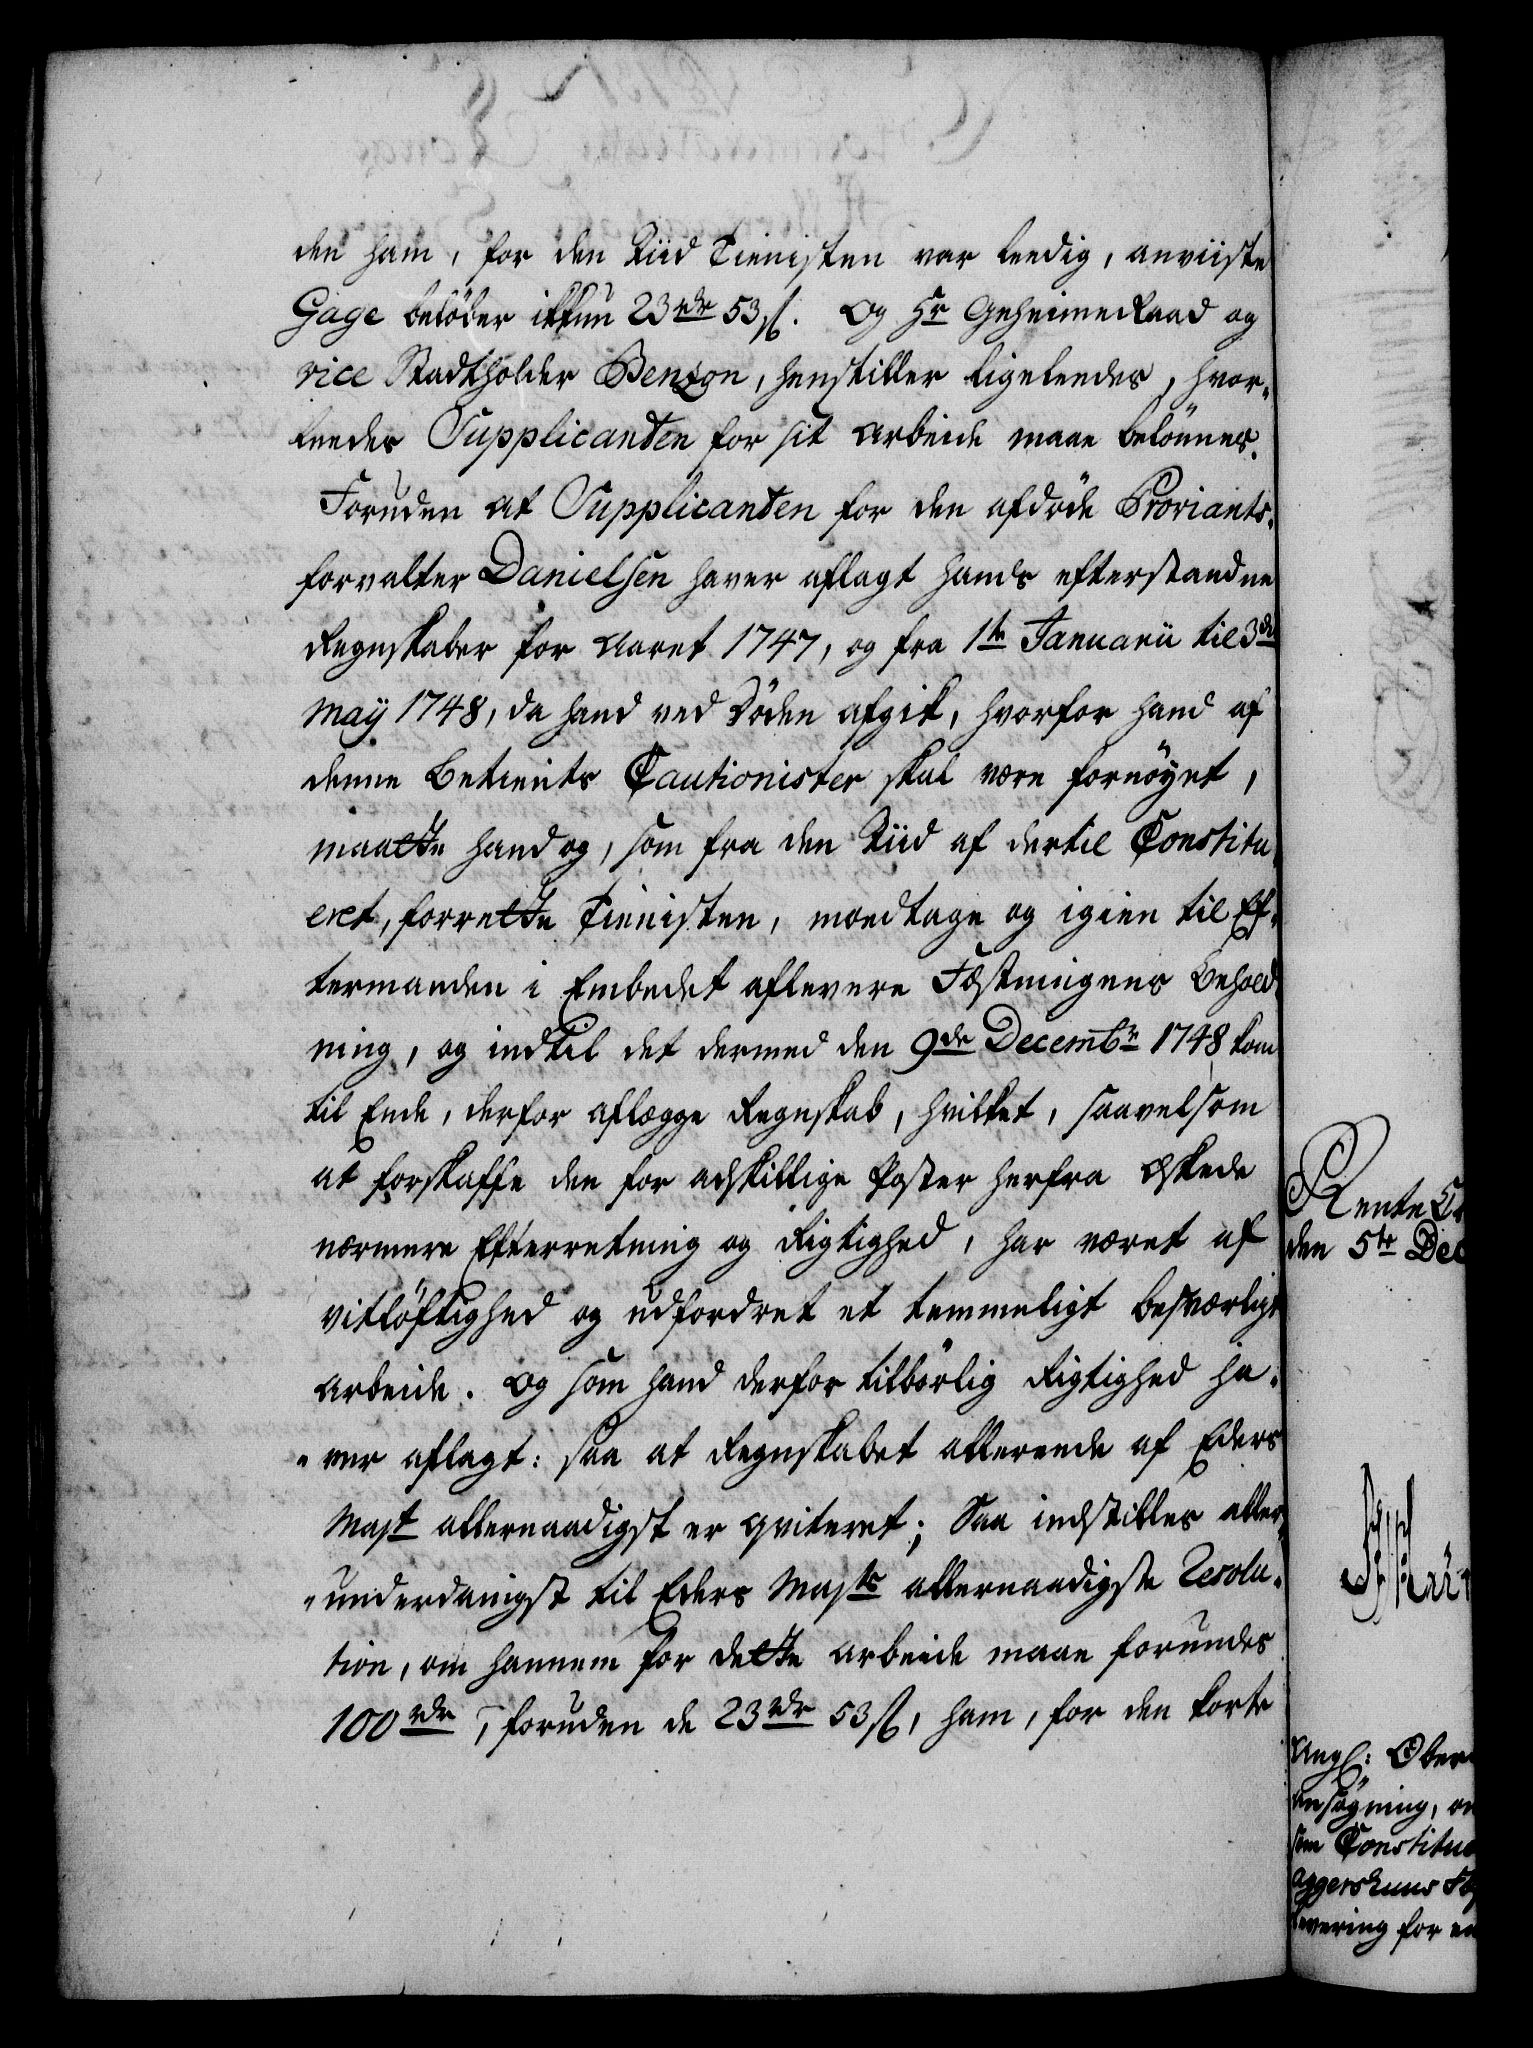 den ham, for den Tiid Tienisten var leedig, anviiste
Gage beløber ikkun 23 rdr 53 ß. Og Hr Geheime Raad og
vice Stadtholder Benzon, henstiller ligeleedes, hvor-
leedes Supplicanten for sit Arbeide maae belönnes.
Foruden at Supplicanten for den afdöde Proviants-
forvalter Danielsen haver aflagt hands efterstandne
Regnskaber for Aaret 1747, og fra 1te Januarii til 3de
Maÿ 1748, da hand ved Döden afgik, hvorfor hand af
denne Betients Cautionister skal være fornöyet,
maatte hand og, som fra den Tiid af dertil Constitu-
eret, forrette Tienisten, modtage og igien til Ef-
termanden i Embedet aflevere Fæstningens Behold-
ning, og indtil det dermed den 9de Decembr 1748 kom
til Ende, derfor aflægge Regnskab, hvilket, saavelsom
at forskaffe den for adskillige Poster herfra æskede
nærmere Efterretning og Rigtighed, har været af
vitlöftighed og udfordret et temmeligt besværligt
Arbeide. Og som hand derfor tilbörlig Rigtighed ha-
ver aflagt: saa at Regnskabet allereede af Eders
Mayt allernaadigst er qviteret; Saa indstilles aller-
underdanigst til Eders Mayts allernaadigste Resolu-
tion, om hannem for dette Arbeide maae forundes
100 rdr, foruden de 23 rdr 53 ß, ham, for den korte
Rente C
den 5te Dec
Angl: Ober
Ansøgning, om
som Constitue
Aggershuus Fæ
levering for en